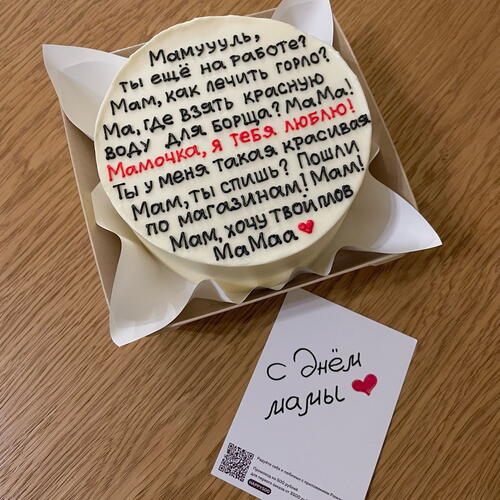 Мамуууль,
ты ещё на работе?
Мам, как лечить горло?
Ма, где взять красную
воду для борща? МаМа!
Мамочка, я тебя люблю!
Ты у меня такая красивая
Мам, ты спишь? Пошли
по магазинам! Мам!
Мам, хочу твой плов
МаМаа
с Днём
мамы